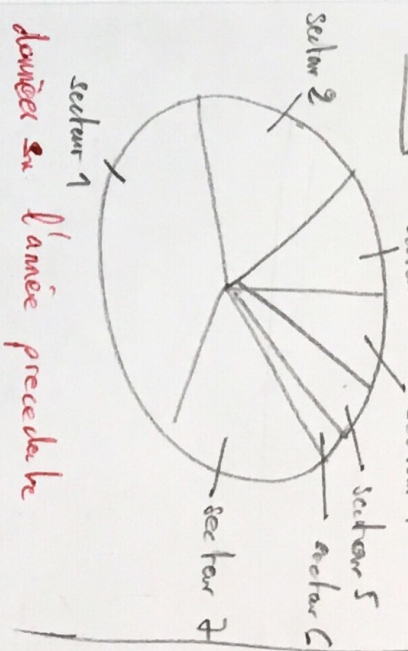 secteur 1
secteur 2
secteur 5
secteur 6
secteur 7
données sur l'année precedente